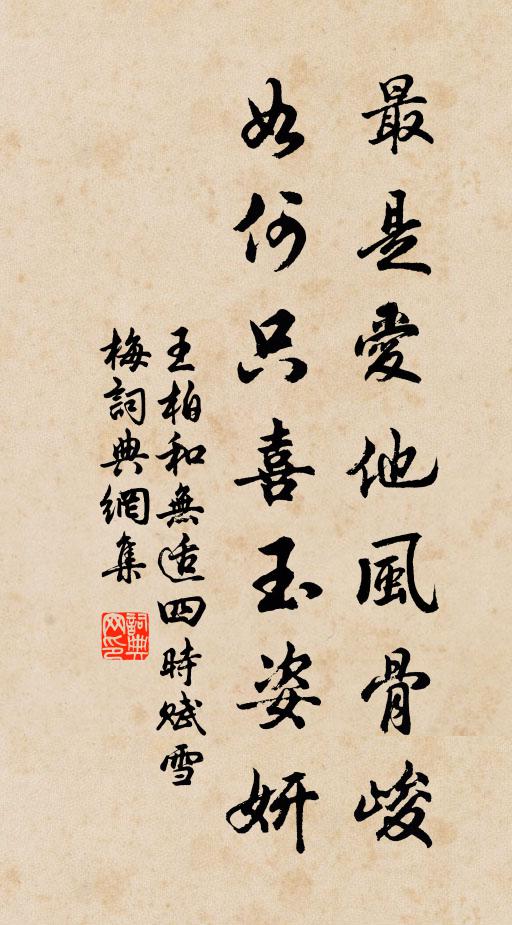 最是愛他風骨峻
如何只喜玉姿妍
王柏和無适四時賦雪
梅詞典網集
詞典网印